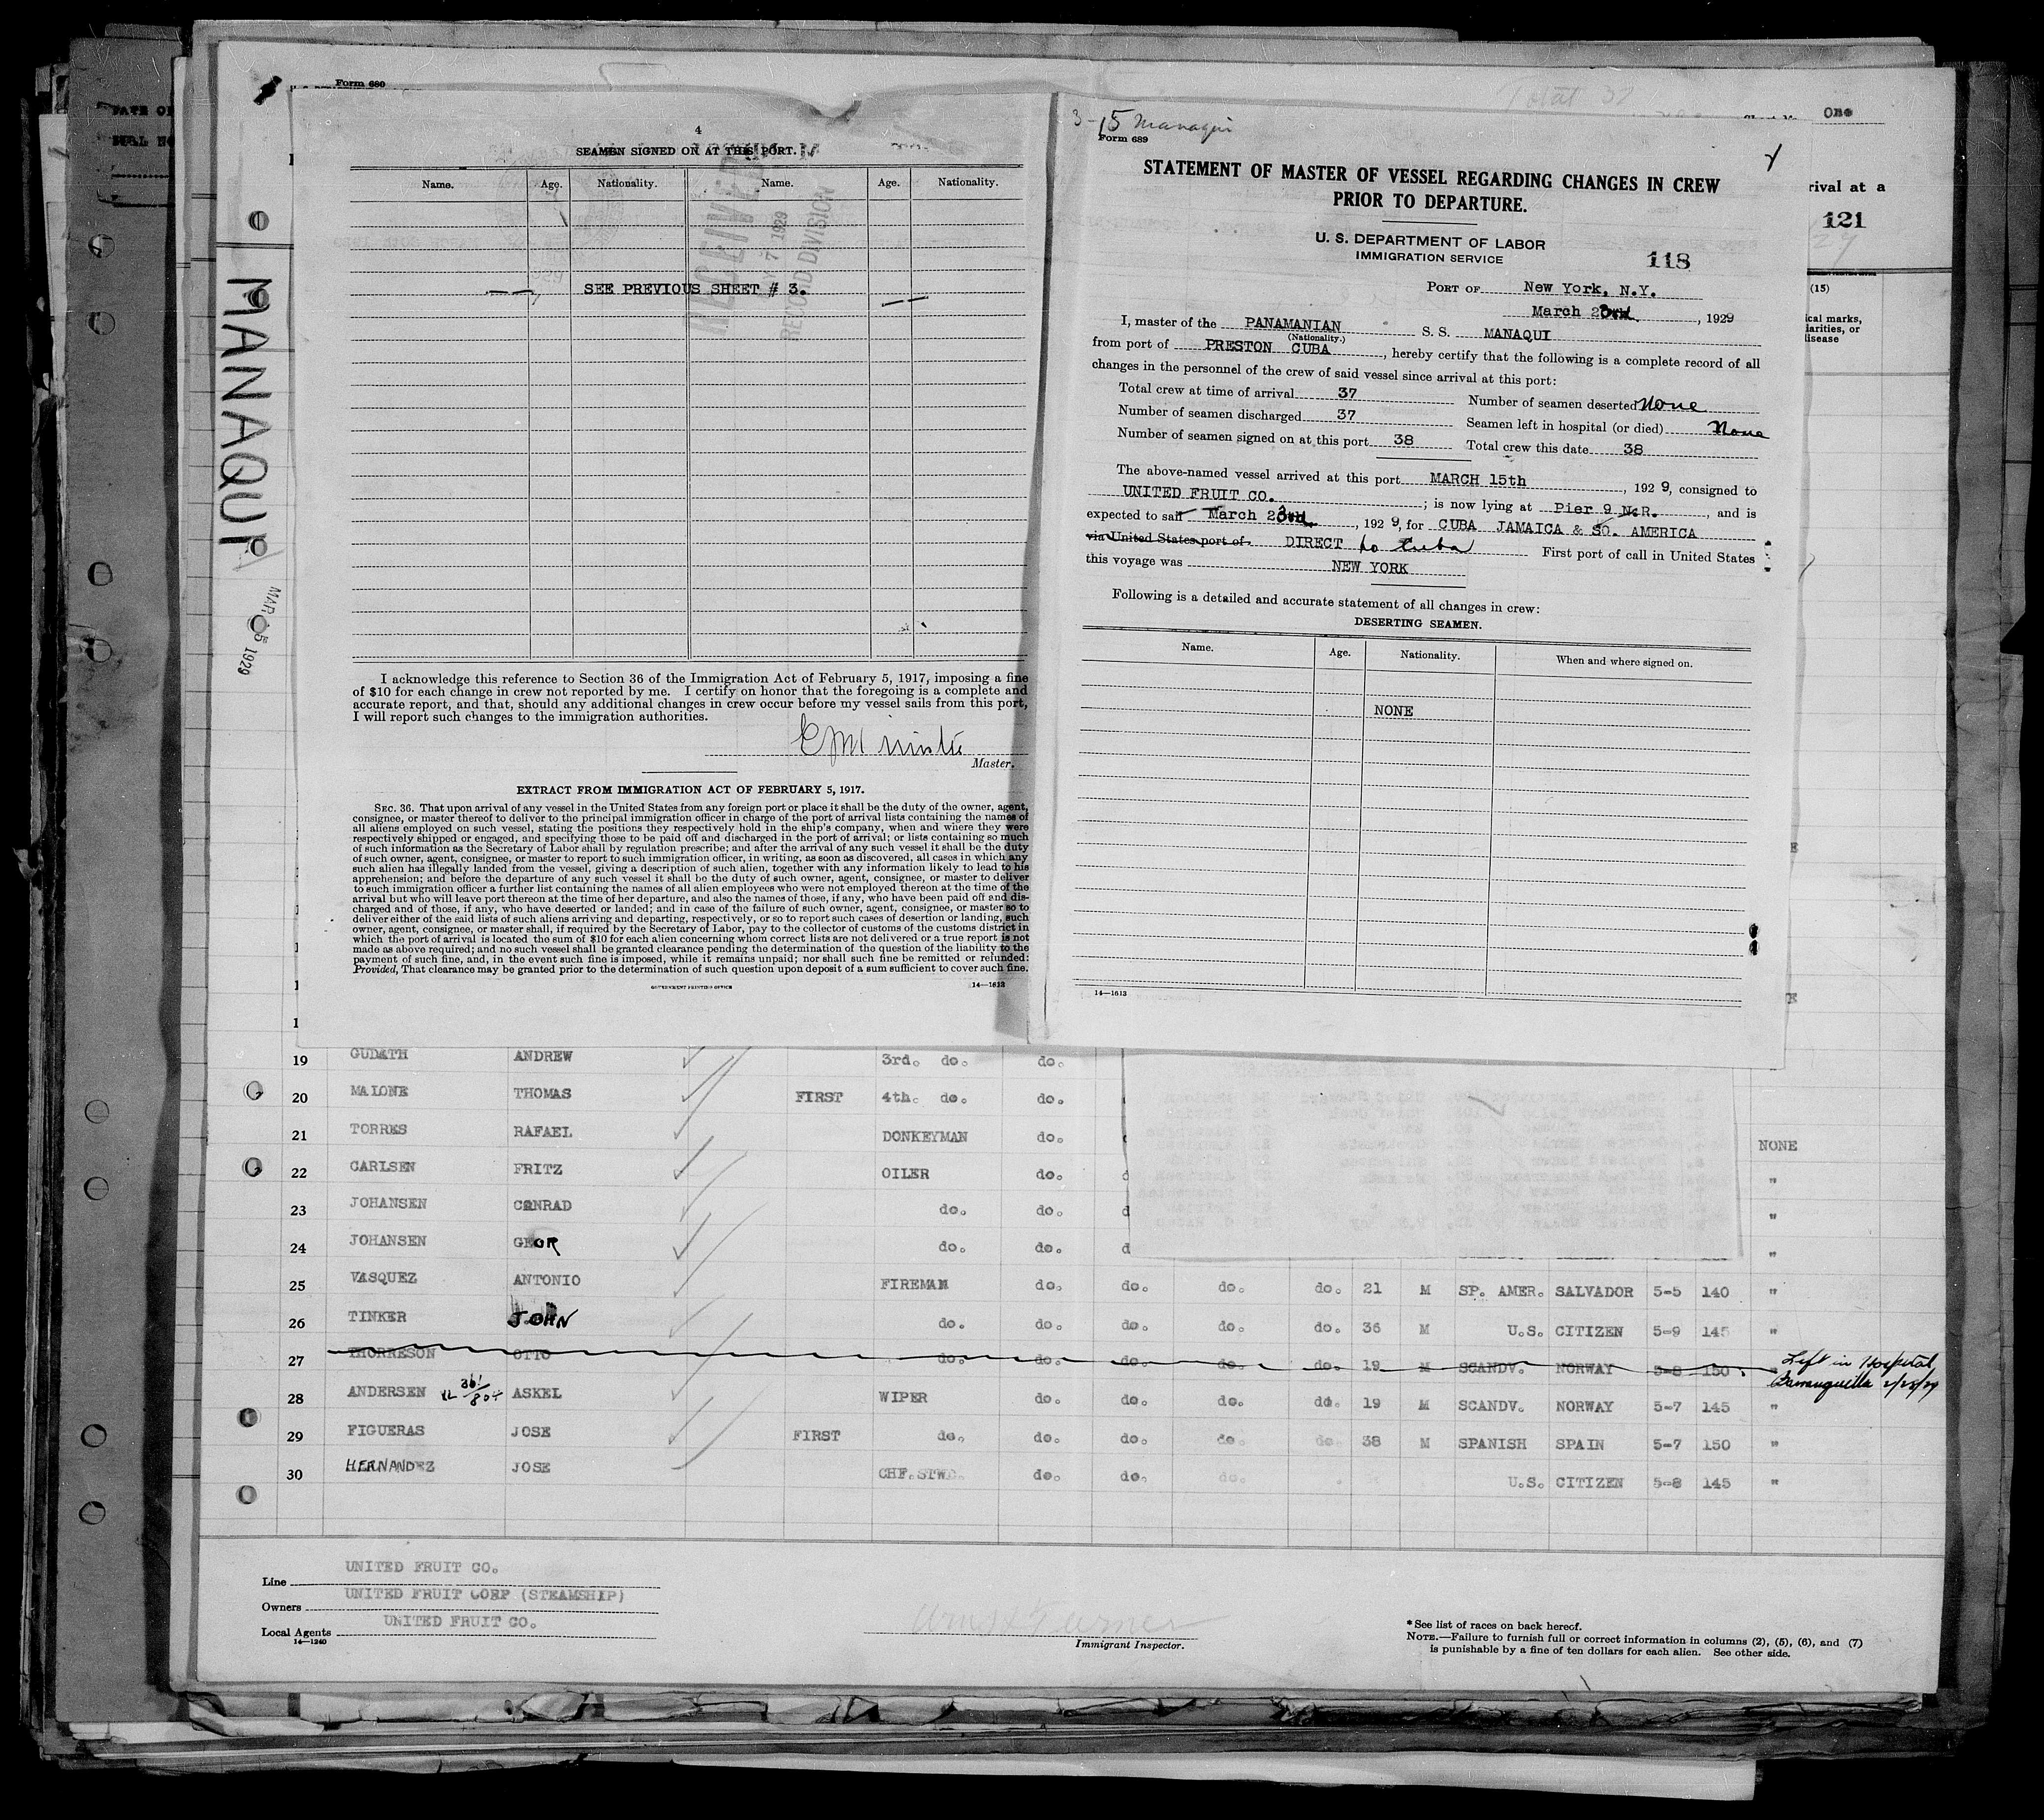 Form 680
One
rival at a
121
(15)
ical marks,
iarities, or
disease
MANAQUI
1929
4
SEAMEN SIGNED ON AT THIS PORT.
Name. Age. Nationality. Name. Age. Nationality.
RECEIVED
7 1929
RECORD DIVISION
SEE PREVIOUS SHEET # 3.
I acknowledge this reference to Section 36 of the Immigration Act of February 5, 1917, imposing a fine
of $10 for each change in crew not reported by me. I certify on honor that the foregoing is a complete and
accurate report, and that, should any additional changes in crew occur before my vessel sails from this port,
I will report such changes to the immigration authorities.
Master.
EXTRACT FROM IMMIGRATION ACT OF FEBRUARY 5, 1917.
SEC. 36. That upon arrival of any vessel in the United States from any foreign port or place it shall be the duty of the owner, agent,
consignee, or master thereof to deliver to the principal immigration officer in charge of the port of arrival lists containing the names of
all aliens employed on such vessel, stating the positions they respectively hold in the ship's company, when and where they were
respectively shipped or engaged, and specifying those to be paid off and discharged in the port of arrival; or lists containing so much
of such information as the Secretary of Labor shall by regulation prescribe; and after the arrival of any such vessel it shall be the duty
of such owner, agent, consignee, or master to report to such immigration officer, in writing, as soon as discovered, all cases in which any
such alien has illegally landed from the vessel, giving a description of such alien, together with any information likely to lead to his
apprehension; and before the departure of any such vessel it shall be the duty of such owner, agent, consignee, or master to deliver
to such immigration officer a further list containing the names of all alien employees who were not employed thereon at the time of the
arrival but who will leave port thereon at the time of her departure, and also the names of those, if any, who have been paid off and dis-
charged and of those, if any, who have deserted or landed; and in case of the failure of such owner, agent, consignee, or master so to
deliver either of the said lists of such aliens arriving and departing, respectively, or so to report such cases of desertion or landing, such
owner, agent, consignee, or master shall, if required by the Secretary of Labor, pay to the collector of customs of the customs district in
which the port of arrival is located the sum of $10 for each alien concerning whom correct lists are not delivered or a true report is not
made as above required; and no such vessel shall be granted clearance pending the determination of the question of the liability to the
payment of such fine, and, in the event such fine is imposed, while it remains unpaid; nor shall such fine be remitted or refunded:
Provided, That clearance may be granted prior to the determination of such question upon deposit of a sum sufficient to cover such fine.
GOVERNMENT PRINTING OFFICE 14—1613
3-15 Manaqui
Form 689
STATEMENT OF MASTER OF VESSEL REGARDING CHANGES IN CREW
PRIOR TO DEPARTURE.
U. S. DEPARTMENT OF LABOR
IMMIGRATION SERVICE
118
PORT OF New York, N.Y.
March 23rd, 1929
I, master of the PANAMANIAN S. S. MANAQUI
(Nationality.)
from port of PRESTON CUBA, hereby certify that the following is a complete record of all
changes in the personnel of the crew of said vessel since arrival at this port:
Total crew at time of arrival 37 Number of seamen deserted None
Number of seamen discharged 37 Seamen left in hospital (or died) None
Number of seamen signed on at this port 38 Total crew this date 38
The above-named vessel arrived at this port MARCH 15th, 1929, consigned to
UNITED FRUIT CO.; is now lying at Pier 9 N.R., and is
expected to sail March 23rd, 1929, for CUBA JAMAICA & SO. AMERICA
via United States port of DIRECT to Cuba First port of call in United States
this voyage was NEW YORK
Following is a detailed and accurate statement of all changes in crew:
DESERTING SEAMEN.
Name. Age. Nationality. When and where signed on.
NONE
14—1613
19 GUDATH ANDREW 3rd. do. do.
20 MALONE THOMAS FIRST 4th. do. do.
21 TORRES RAFAEL DONKEYMAN do. NONE
22 CARLSEN FRITZ OILER do. "
23 JOHANSEN CONRAD do. do. "
24 JOHANSEN GEOR do. do. "
25 VASQUEZ ANTONIO FIREMAN do. do. do. do. 21 M SP. AMER. SALVADOR 5-5 140 "
26 TINKER JOHN do. do. do. do. do. 36 M U.S. CITIZEN 5-9 145 "
27 THORRESON OTTO do. do. do. do. do. 19 M SCANDV. NORWAY 5-8 150 " Left in Hospital,
Barranquilla 2/25/29
28 ANDERSEN ASKEL WIPER do. do. do. do. 19 M SCANDV. NORWAY 5-7 145 "
29 FIGUERAS JOSE FIRST do. do. do. do. do. 38 M SPANISH SPAIN 5-7 150 "
30 HERNANDEZ JOSE CHF.STWD. do. do. do. U.S. CITIZEN 5-8 145 "
Line UNITED FRUIT CO.
Owners UNITED FRUIT CORP (STEAMSHIP)
Local Agents UNITED FRUIT CO.
14—1240
Immigrant Inspector.
*See list of races on back hereof.
NOTE.—Failure to furnish full or correct information in columns (2), (5), (6), and (7)
is punishable by a fine of ten dollars for each alien. See other side.